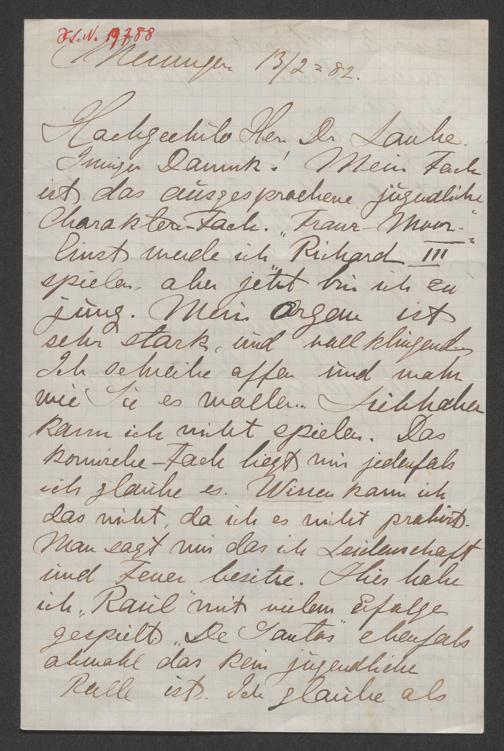 H.I.N. 19788
Meiningen 13/2 = 82.
Hochgeehrter Herr Dr Laube.
Inniger Dannk! Mein Fach
ist das ausgesprochene jugendliche
Charakter-Fach. "Franz-Moor-"
Einst werde ich Richard III
spielen, aber jetzt bin ich zu
jung. Mein Organ ist
sehr stark, und vollklingend.
Ich schreibe offen und wahr
wie Sie es wollen. Liebhaber
kann ich nicht spielen. Das
komische-Fach liegt mir jedenfals
ich glaube es. Wissen kann ich
das nicht, da ich es nicht probirt.
Man sagt mir das ich Leidenschaft
und Feuer besitze. Hier habe
ich "Raul" mit vielem Erfolge
gespielt "De Santos" ebenfals
obwohl das kein jugendliche
Rolle ist. Ich glaube als